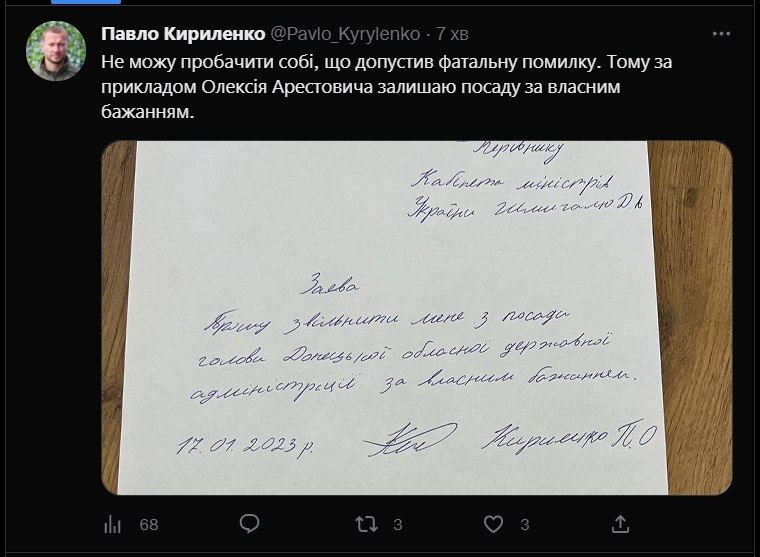 Павло Кириленко @Pavlo_Kyrylenko · 7 хв
Не можу пробачити собі, що допустив фатальну помилку. Тому за
прикладом Олексія Арестовича залишаю посаду за власним
бажанням.
Керівнику
Кабінета міністрів
України Шмигалю Д.А
Заява
Прошу звільнити мене з посади
голови Донецької обласної державної
адміністрації за власним бажанням.
17.01.2023 р. Кириленко П.О
68 3 3